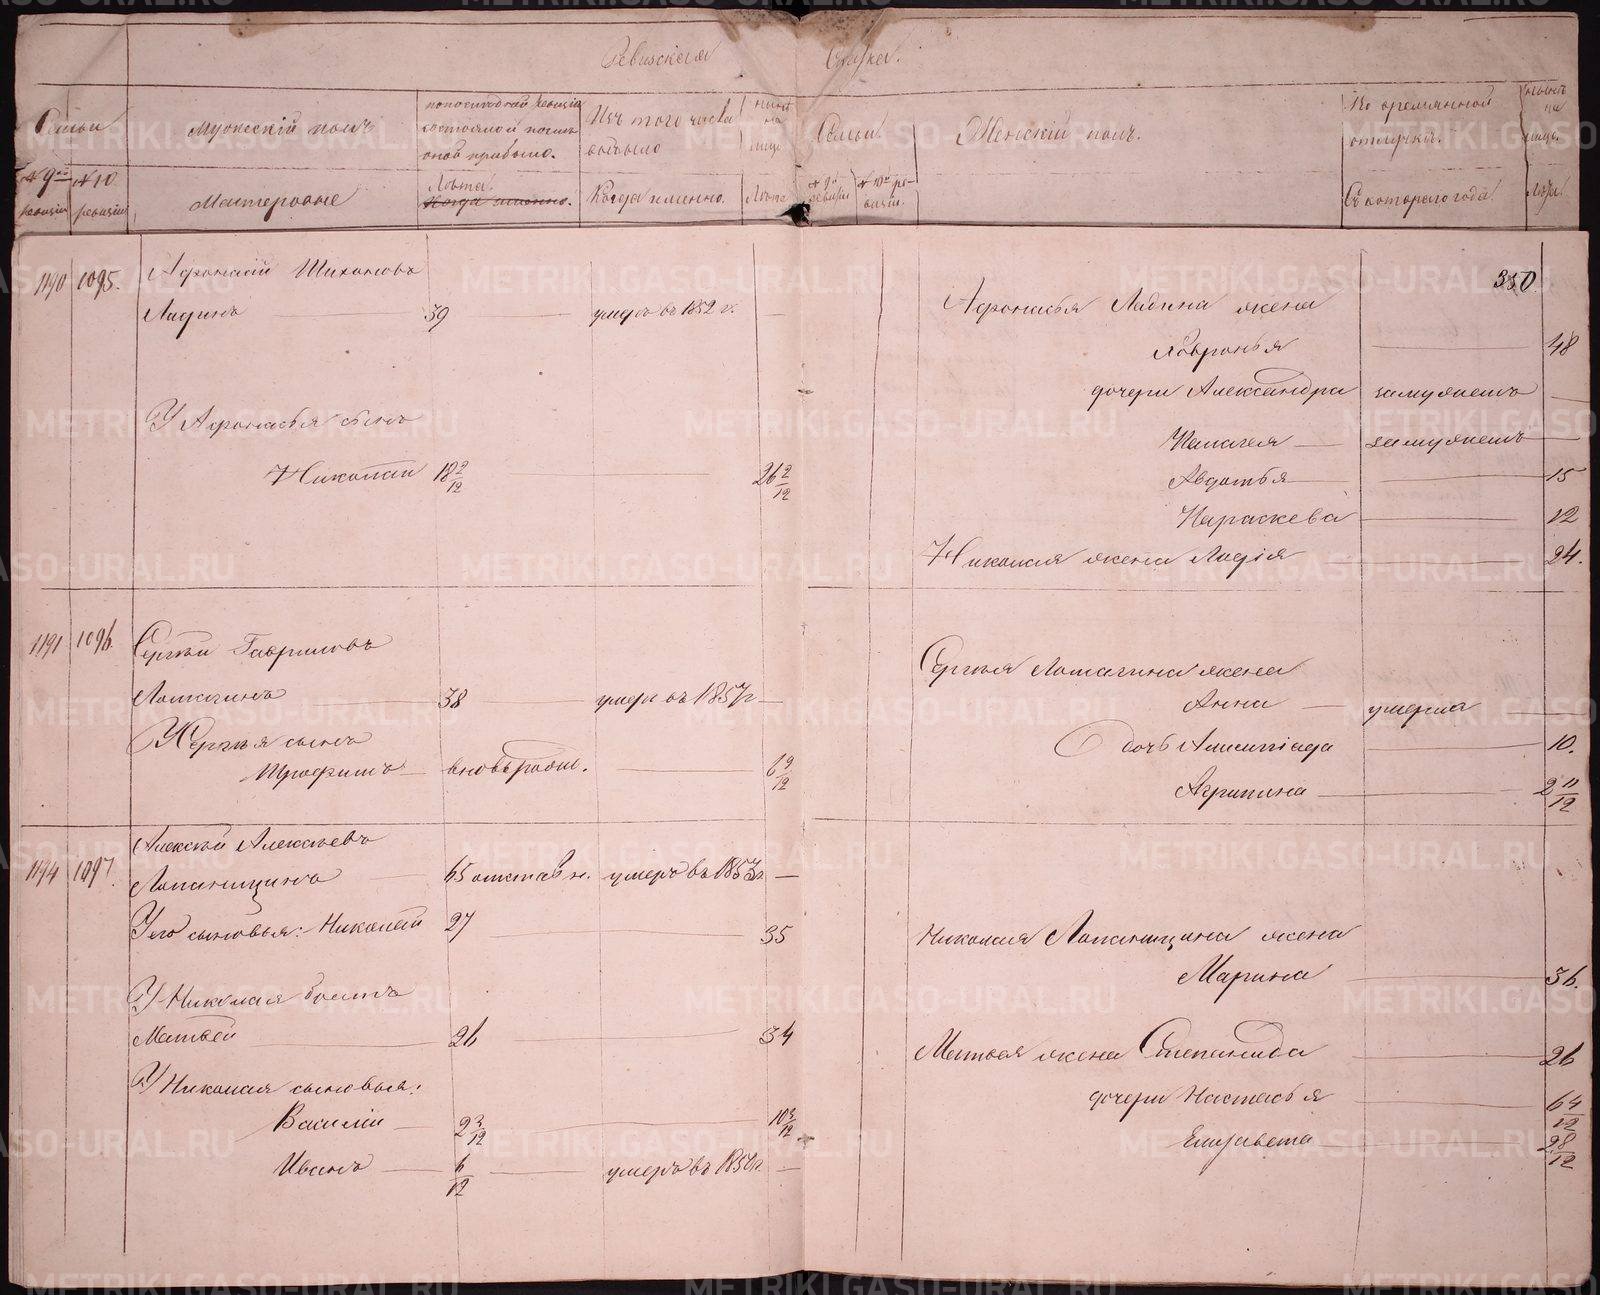 Ревизская Сказка.
Семьи
Мужескій полъ
по последней ревизіи состояло и после оной прибыло.
Изъ того числа выбыло
ныне на лицо
Семьи
Женскій полъ.
Во временной отлучке.
ныне на лицо
№ 9ой ревизіи
№ 10 ревизіи
Мастеровые
Лета.
Когда именно.
Лета
№ 9й ревизіи
№ 10й ревизіи.
Съ котораго года.
Лета.
350.
1190 1095. Афонасій Тихоновъ
Ладинъ 39 умеръ въ 1852 г. —
У Афонасья сынъ
Николай 18 2/12 26 2/12
Афонасья Ладина жена
Февронья 48
дочери Александра замужемъ —
Пелагея замужемъ —
Авдотья 15
Параскева 12
Николая жена Лидія 24.
1191 1096. Сергей Гавриловъ
Ломагинъ 38 умеръ въ 1857 г —
У Сергея сынъ
Трофимъ вновьрожд. 6 9/12
Сергея Ломагина жена
Анна умерла —
дочь Алимпіада 10.
Агрипина 2 11/12
1194 1097. Алексей Алексеевъ
Лопаницинъ 65 отставн. умеръ въ 1853 г. —
У его сыновья: Николай 27 35
У Николая братъ
Матвей 26 34
У Николая сыновья:
Василій 2 3/12 10 3/12
Иванъ 6/12 умеръ въ 1850 г. —
Николая Лопаницина жена
Марина 36.
Матвея жена Степанида 26
дочери Настасья 6 4/12
Елизавета 2 8/12
METRIKI.GASO-URAL.RU